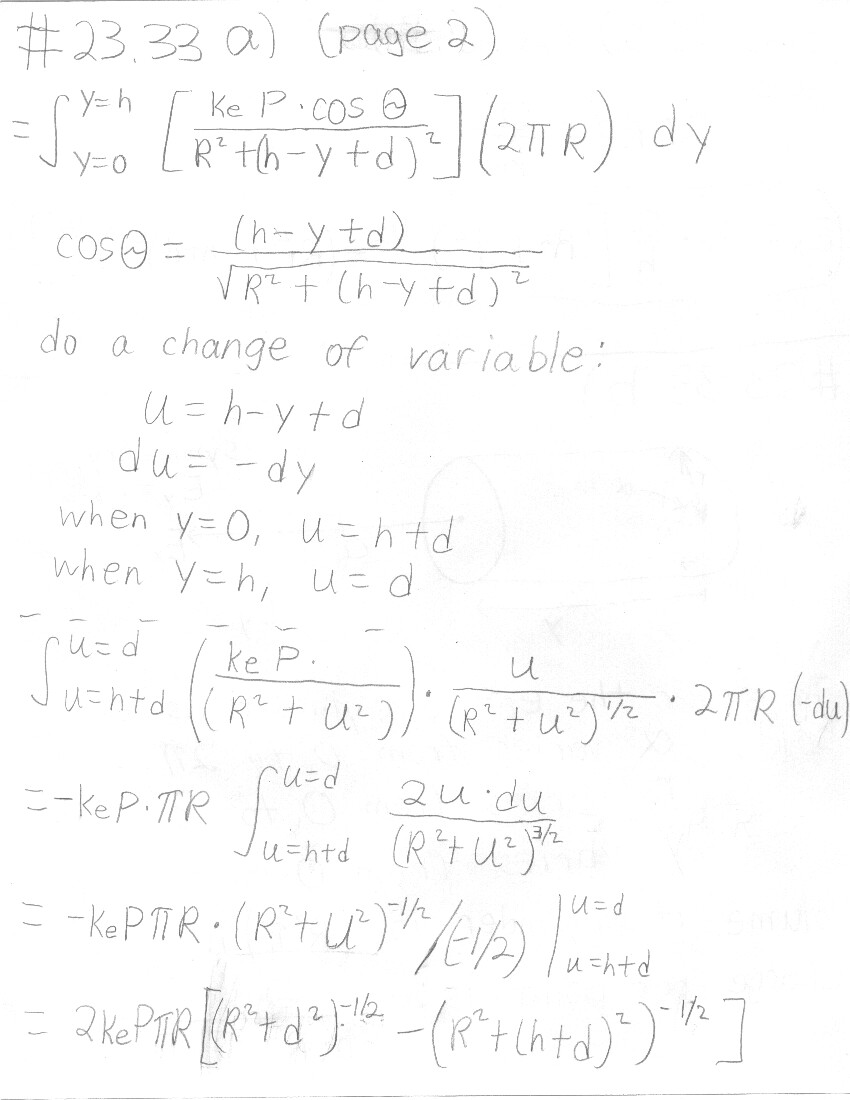 #23.33 a) (page 2)
= ∫_{y=0}^{y=h} [ke P·cos Θ / R²+(h-y+d)²] (2πR) dy
cosΘ = (h-y+d) / √R²+(h-y+d)²
do a change of variable:
u = h-y+d
du = -dy
when y=0, u=h+d
when y=h, u=d
∫_{u=h+d}^{u=d} (ke P· / (R²+u²)) · u / (R²+u²)^{1/2} · 2πR (-du)
= -ke P·πR ∫_{u=h+d}^{u=d} 2u·du / (R²+u²)^{3/2}
= -ke PπR·(R²+u²)^{-1/2}/(-1/2) |_{u=h+d}^{u=d}
= 2ke PπR[(R²+d²)^{-1/2} - (R²+(h+d)²)^{-1/2}]